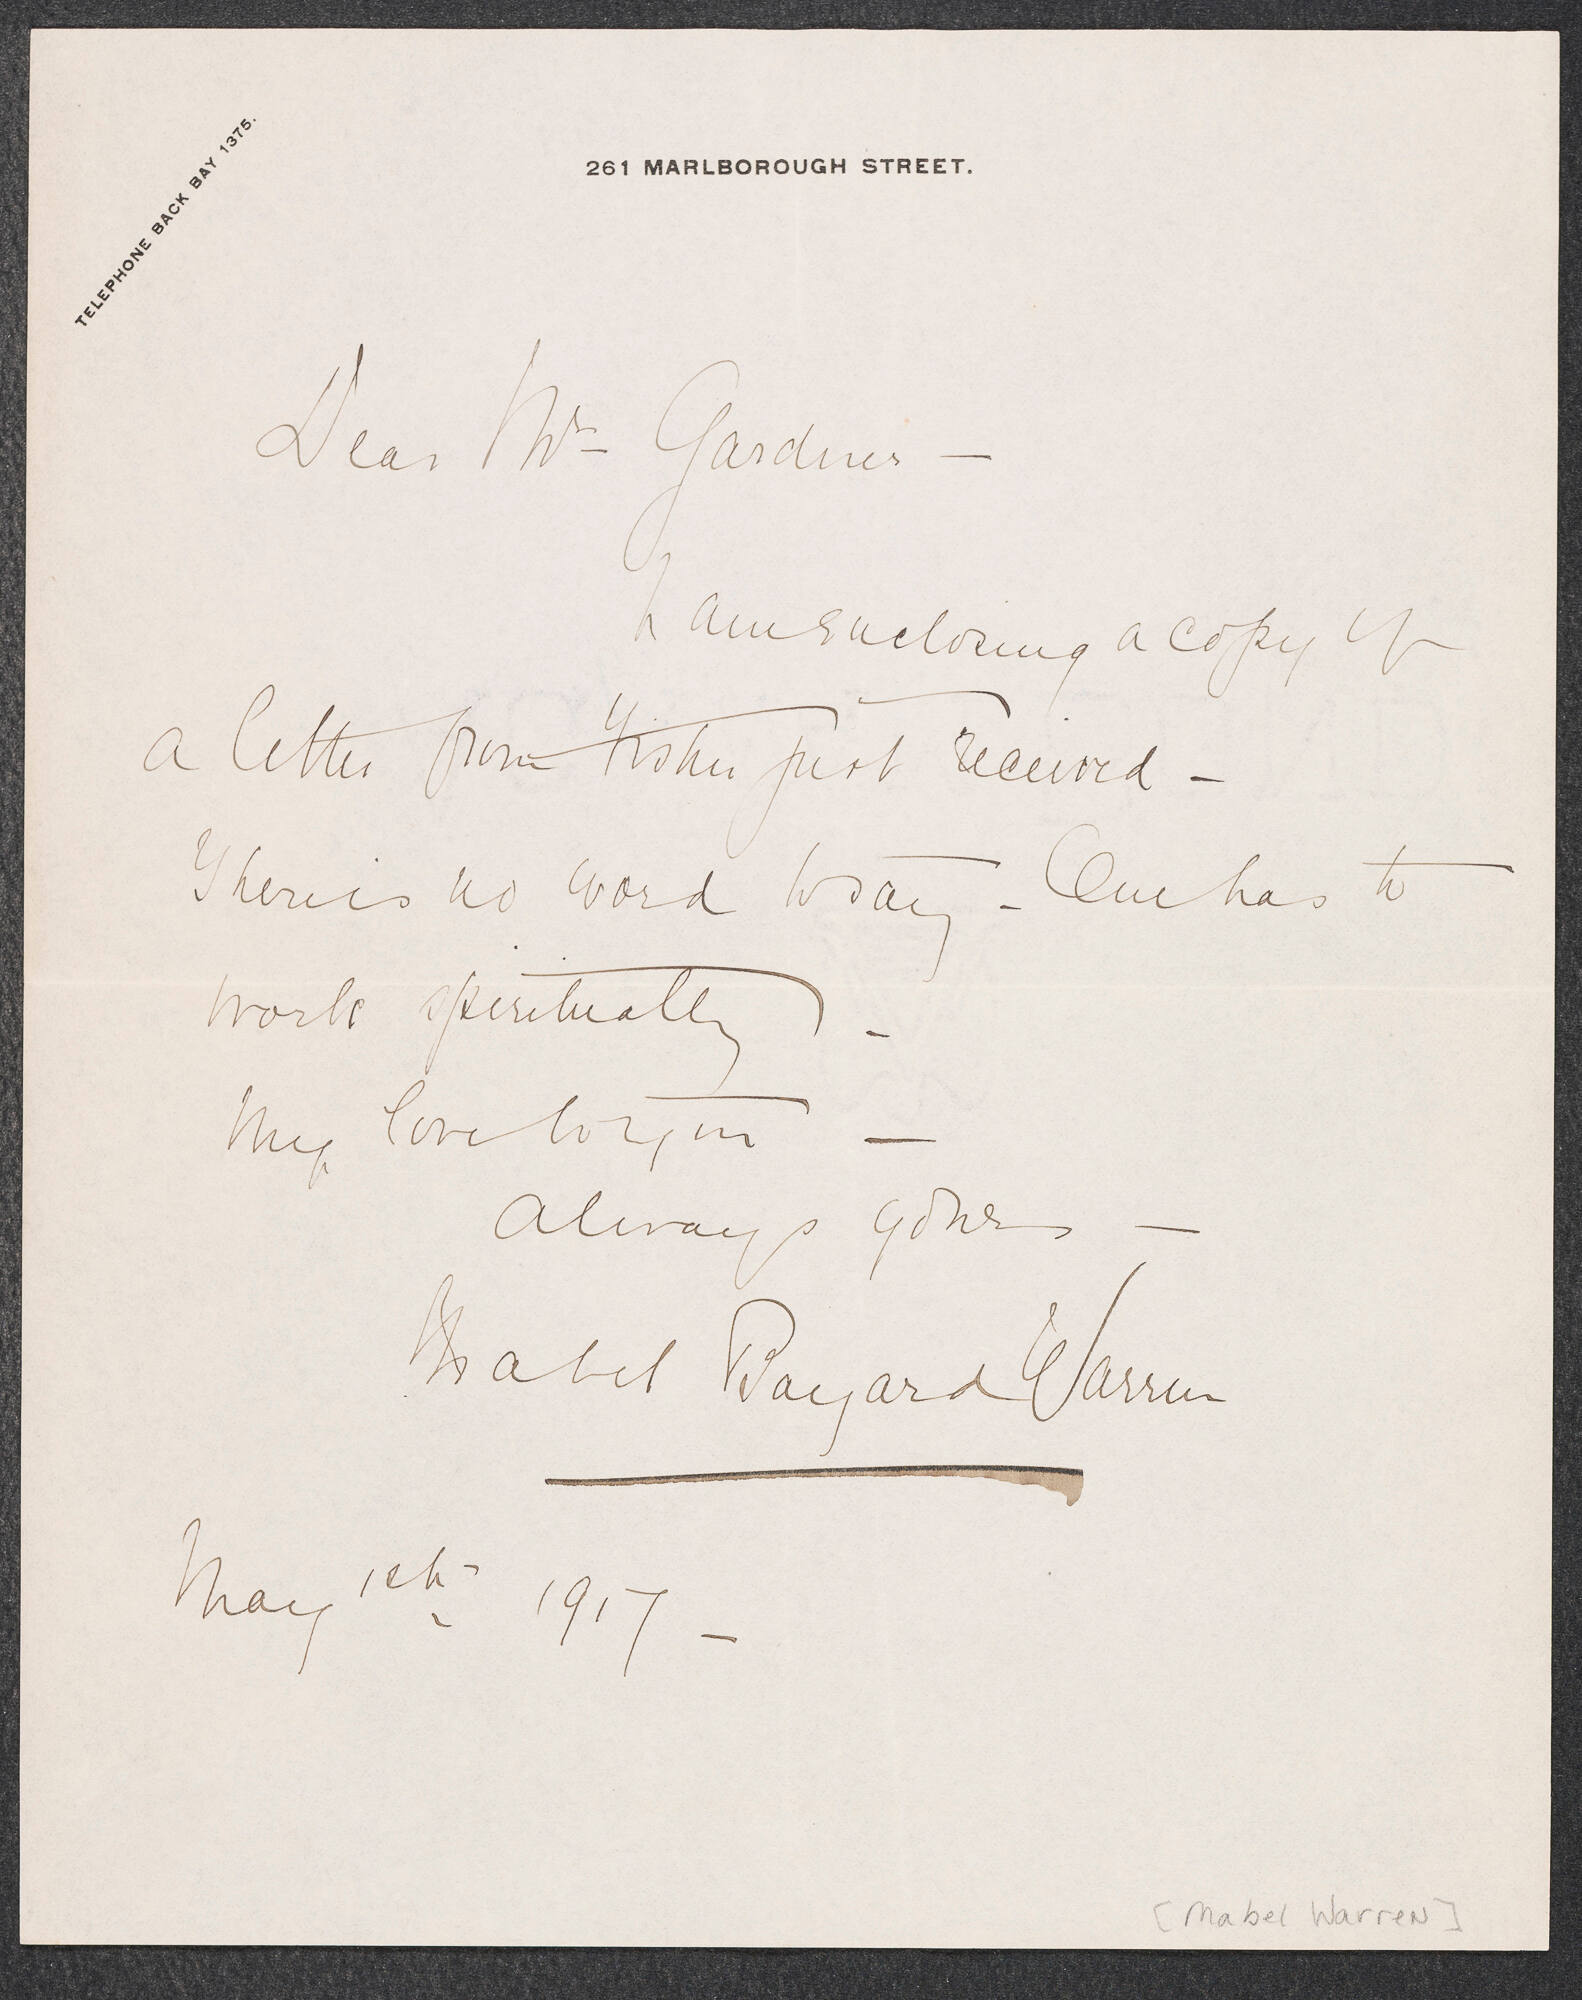 TELEPHONE BACK BAY 1375.
261 MARLBOROUGH STREET.
Dear Mrs Gardner —
I am enclosing a copy of
a letter from Fisher just received —
There is no word today — One has to
work spiritually —
My love to you —
Always yours —
Mabel Bayard Warren
May 1917 —
[Mabel Warren]